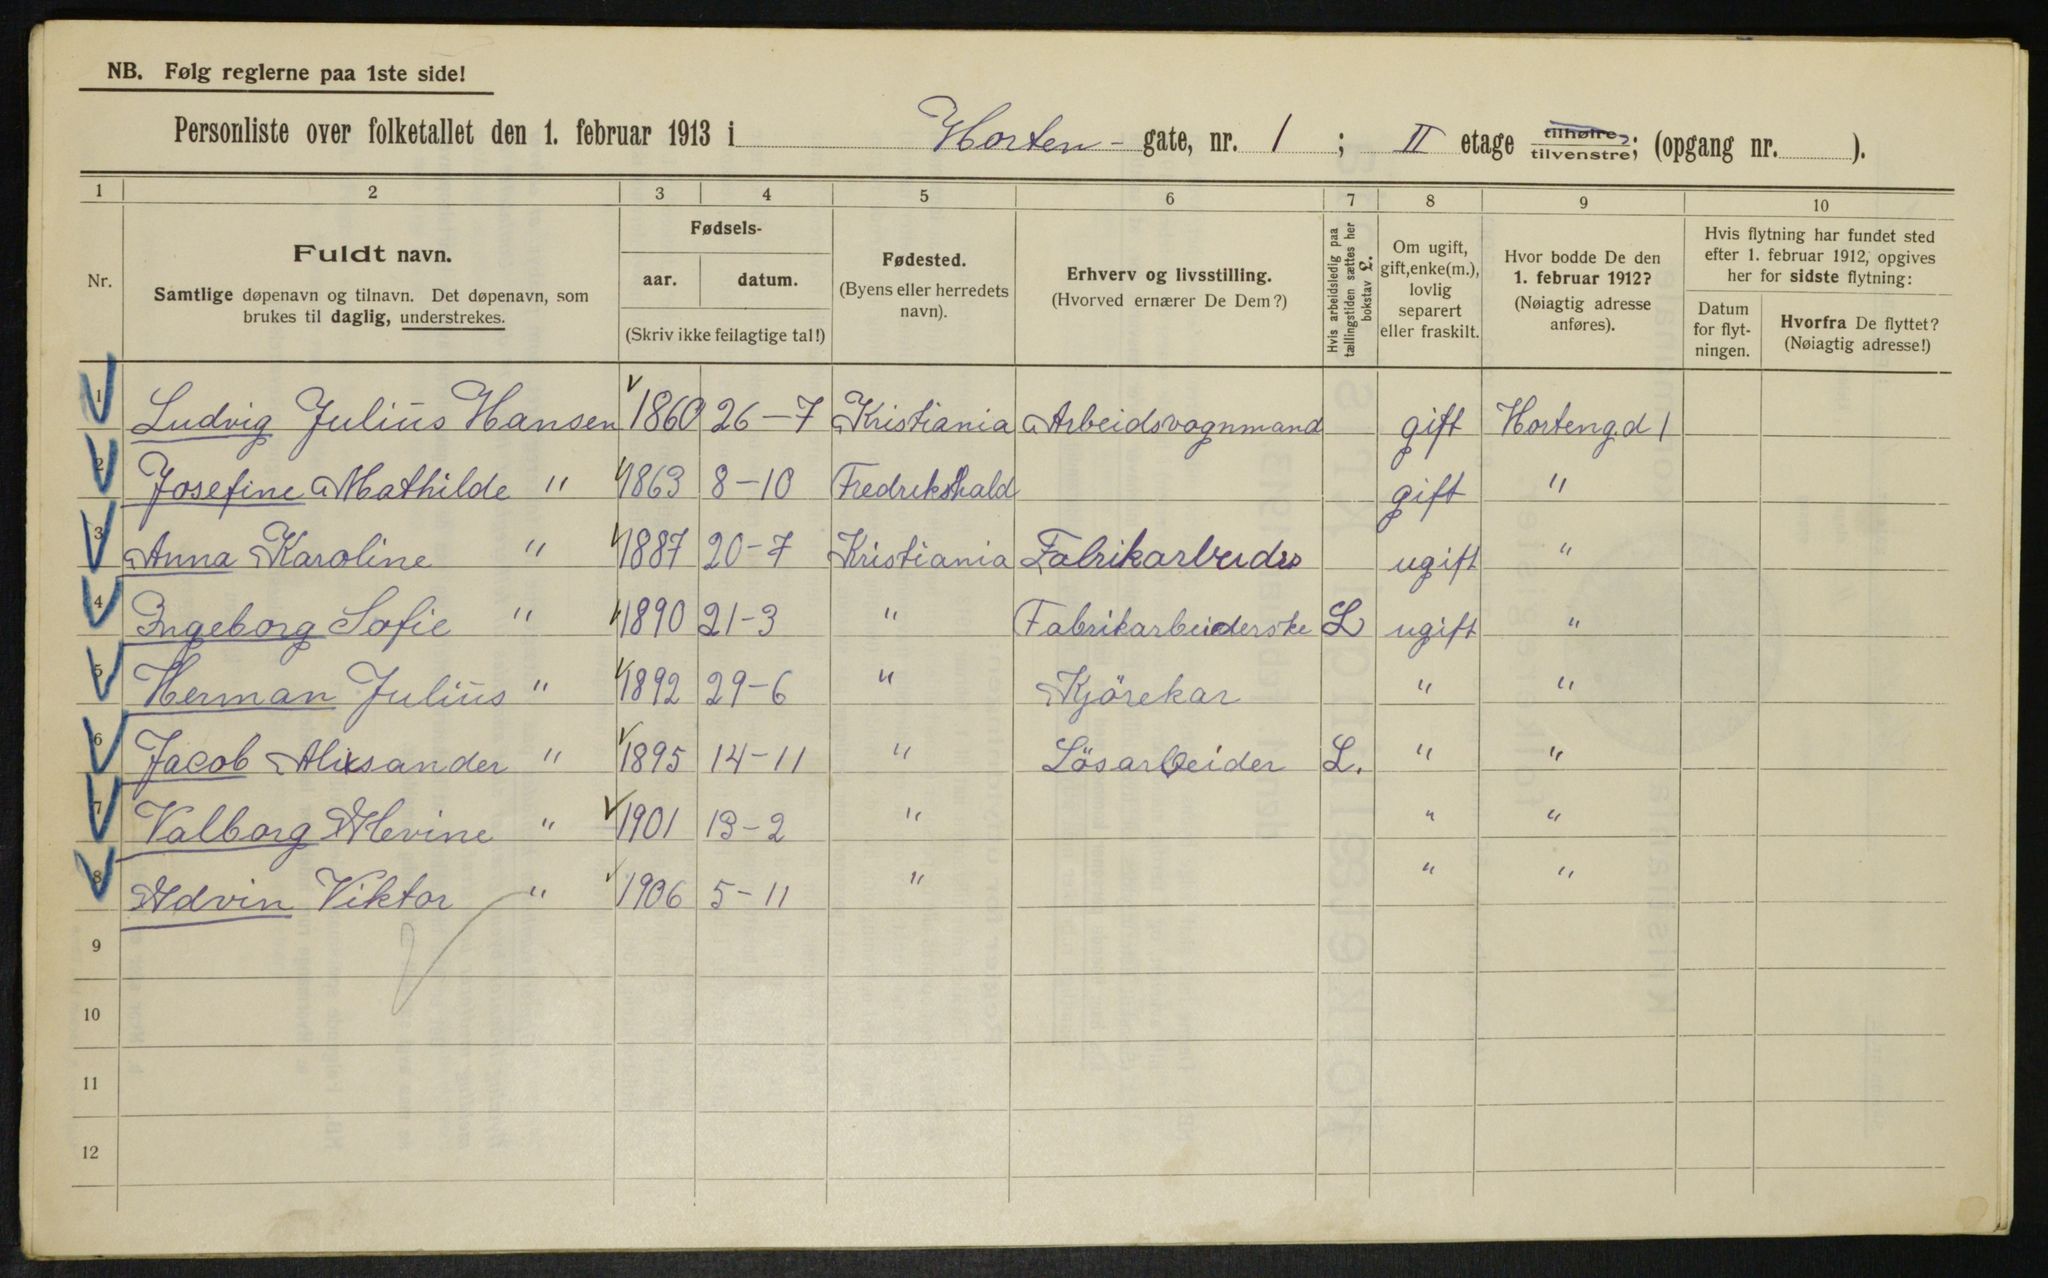 NB. Følg reglerne paa 1ste side!
Personliste over folketallet den 1. februar 1913 i Horten- gate, nr. 1 ; II etage tilhøire tilvenstre; (opgang nr. ).
1 2 3 4 5 6 7 8 9 10
Nr.
Fuldt navn.
Samtlige døpenavn og tilnavn. Det døpenavn, som
brukes til daglig, understrekes.
Fødsels-
aar. datum.
(Skriv ikke feilagtige tal!)
Fødested.
(Byens eller herredets
navn).
Erhverv og livsstilling.
(Hvorved ernærer De Dem?)
Hvis arbeidsledig paa
tællingstiden sættes her
bokstav L.
Om ugift,
gift, enke(m.),
lovlig
separert
eller fraskilt.
Hvor bodde De den
1. februar 1912?
(Nøiagtig adresse
anføres).
Hvis flytning har fundet sted
efter 1. februar 1912, opgives
her for sidste flytning:
Datum
for flyt-
ningen.
Hvorfra De flyttet?
(Nøiagtig adresse!)
1 Ludvig Julius Hansen 1860 26-7 Kristiania Arbeidsvognmand gift Horteng.d 1
2 Josefine Mathilde " 1863 8-10 Fredrikshald gift "
3 Anna Karoline " 1887 20-7 Kristiania Fabrikarbeider ugift "
4 Ingeborg Sofie " 1890 21-3 " Fabrikarbeiderske L ugift "
5 Herman Julius " 1892 29-6 " Kjörekar " "
6 Jacob Alixsander " 1895 14-11 " Lösarbeider L. " "
7 Valborg Alvine " 1901 13-2 " " "
8 Advin Viktor " 1906 5-11 " " "
9
10
11
12